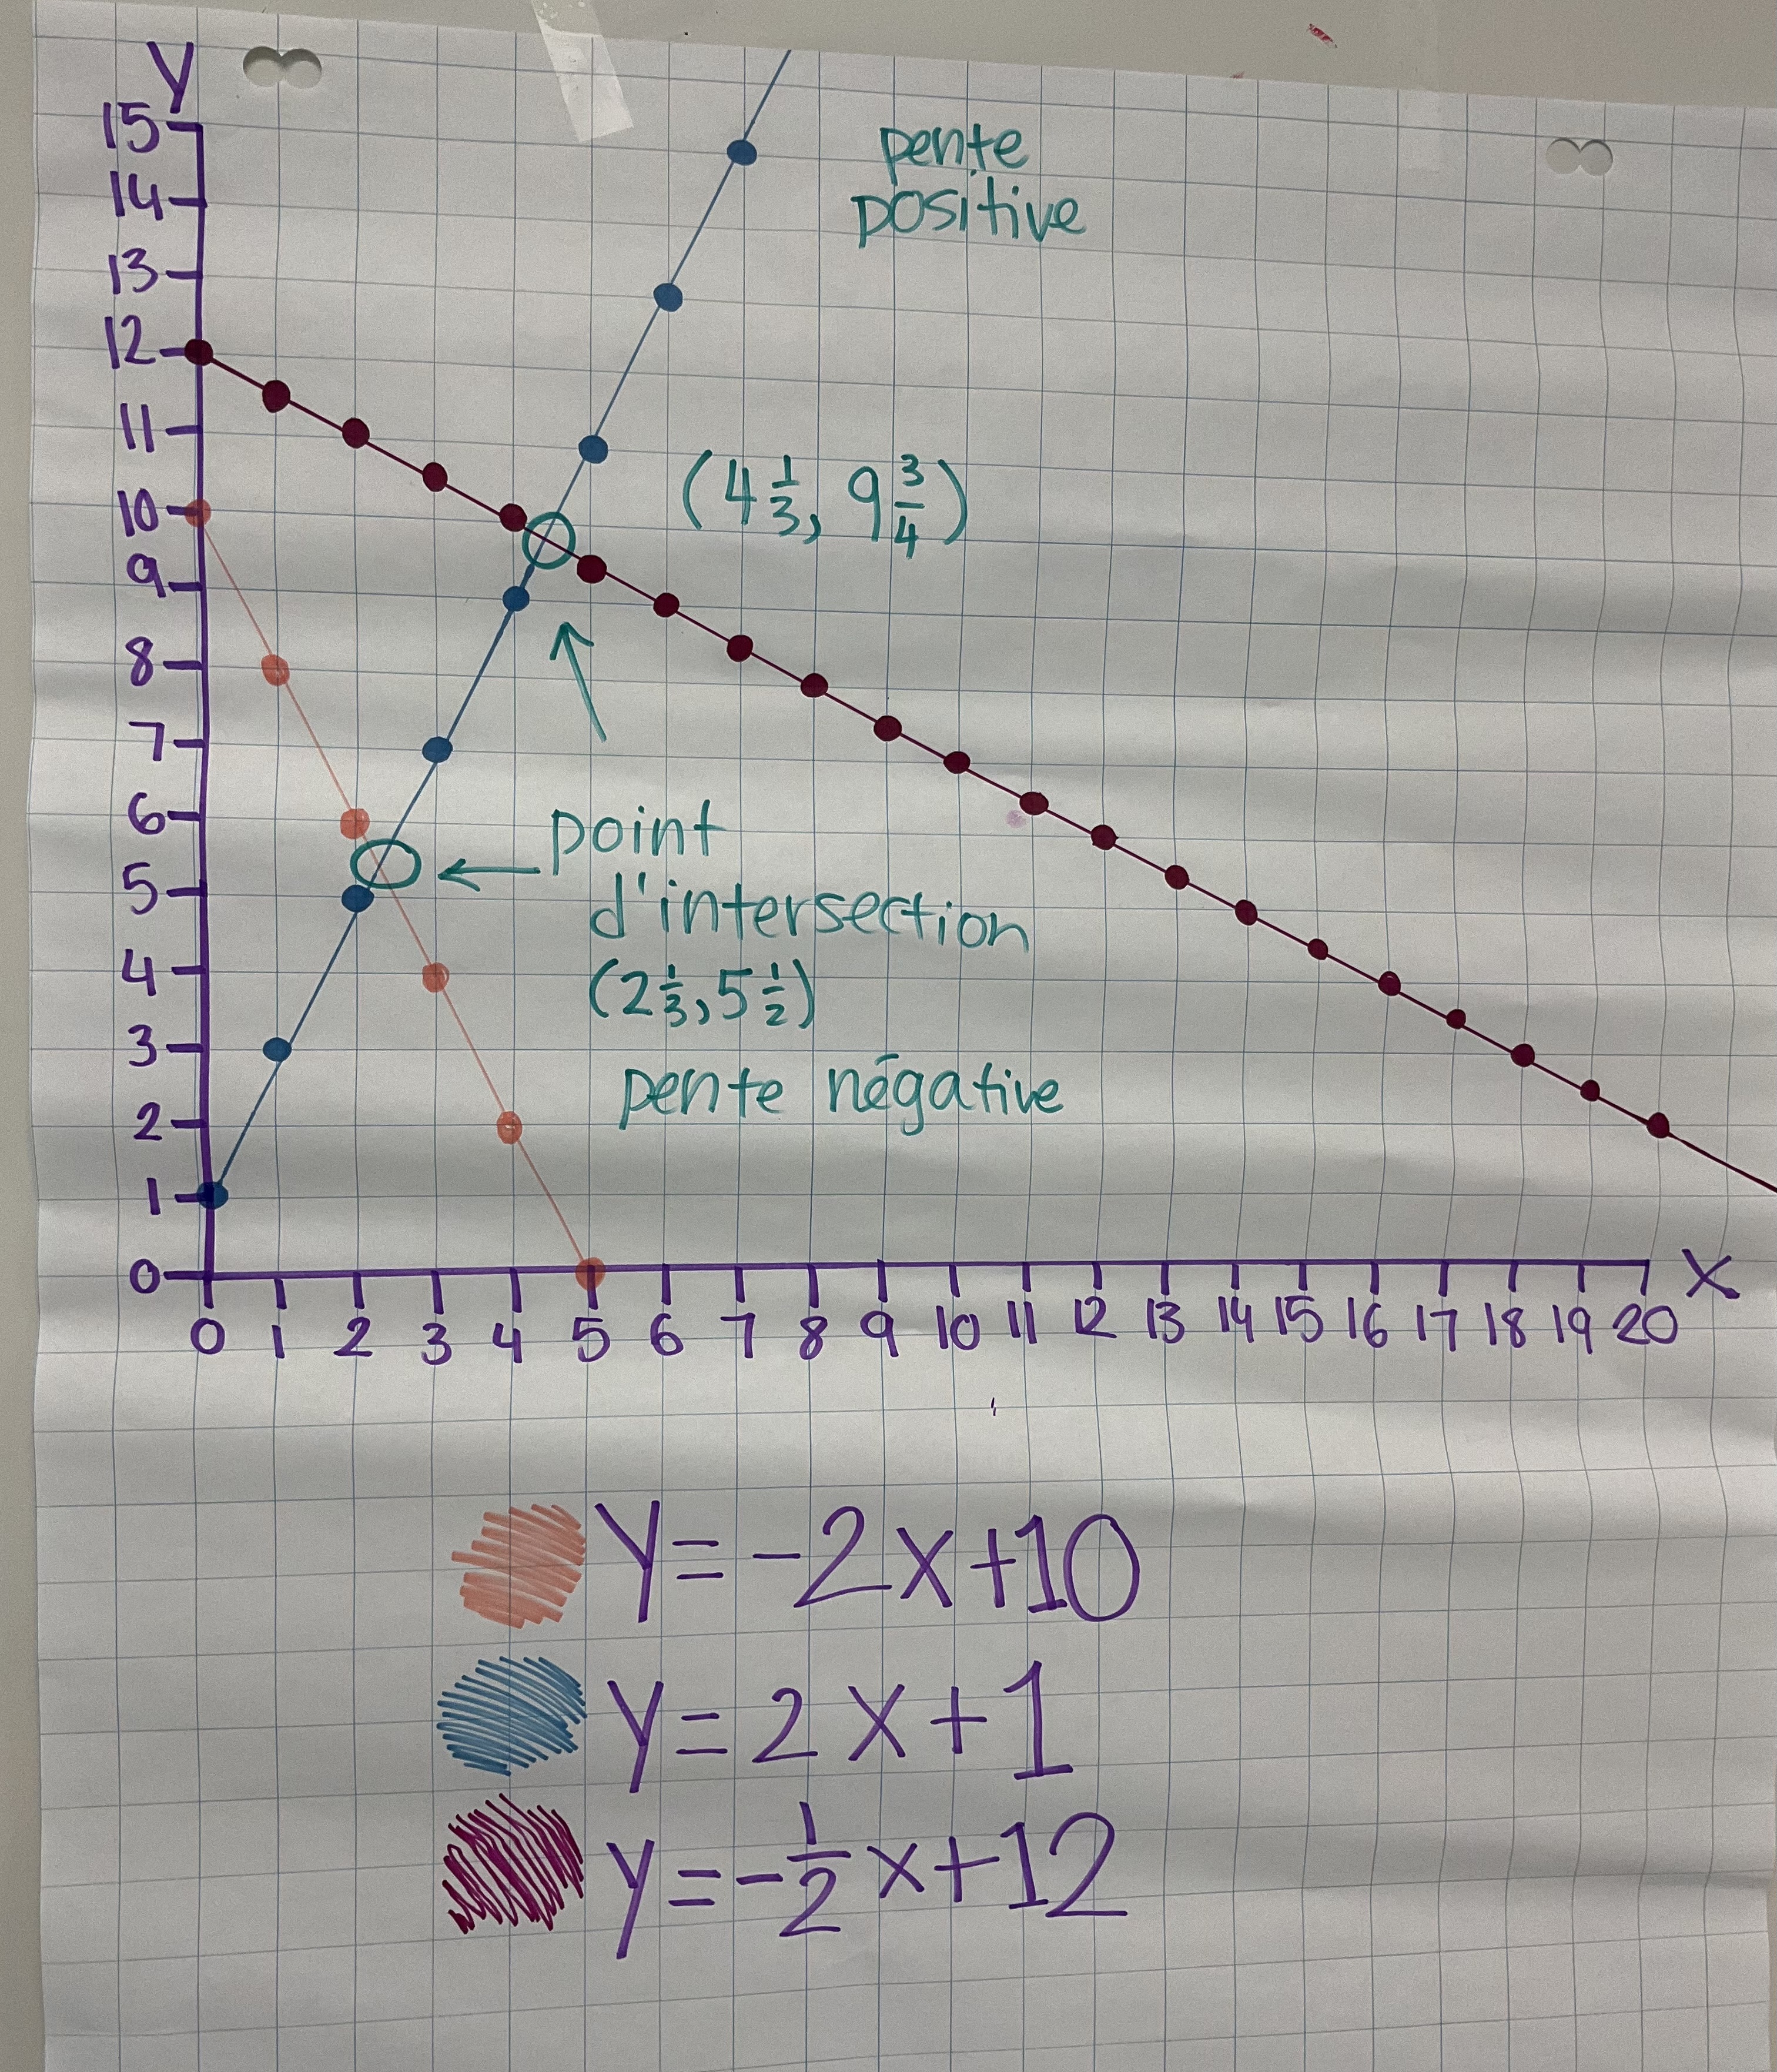 y
15
14
13
12
11
10
9
8
7
6
5
4
3
2
1
0
pente
positive
(4 1/3, 9 3/4)
point
d'intersection
(2 1/3, 5 1/2)
pente négative
0 1 2 3 4 5 6 7 8 9 10 11 12 13 14 15 16 17 18 19 20 x
y = -2x+10
y = 2x+1
y = -1/2 x+12